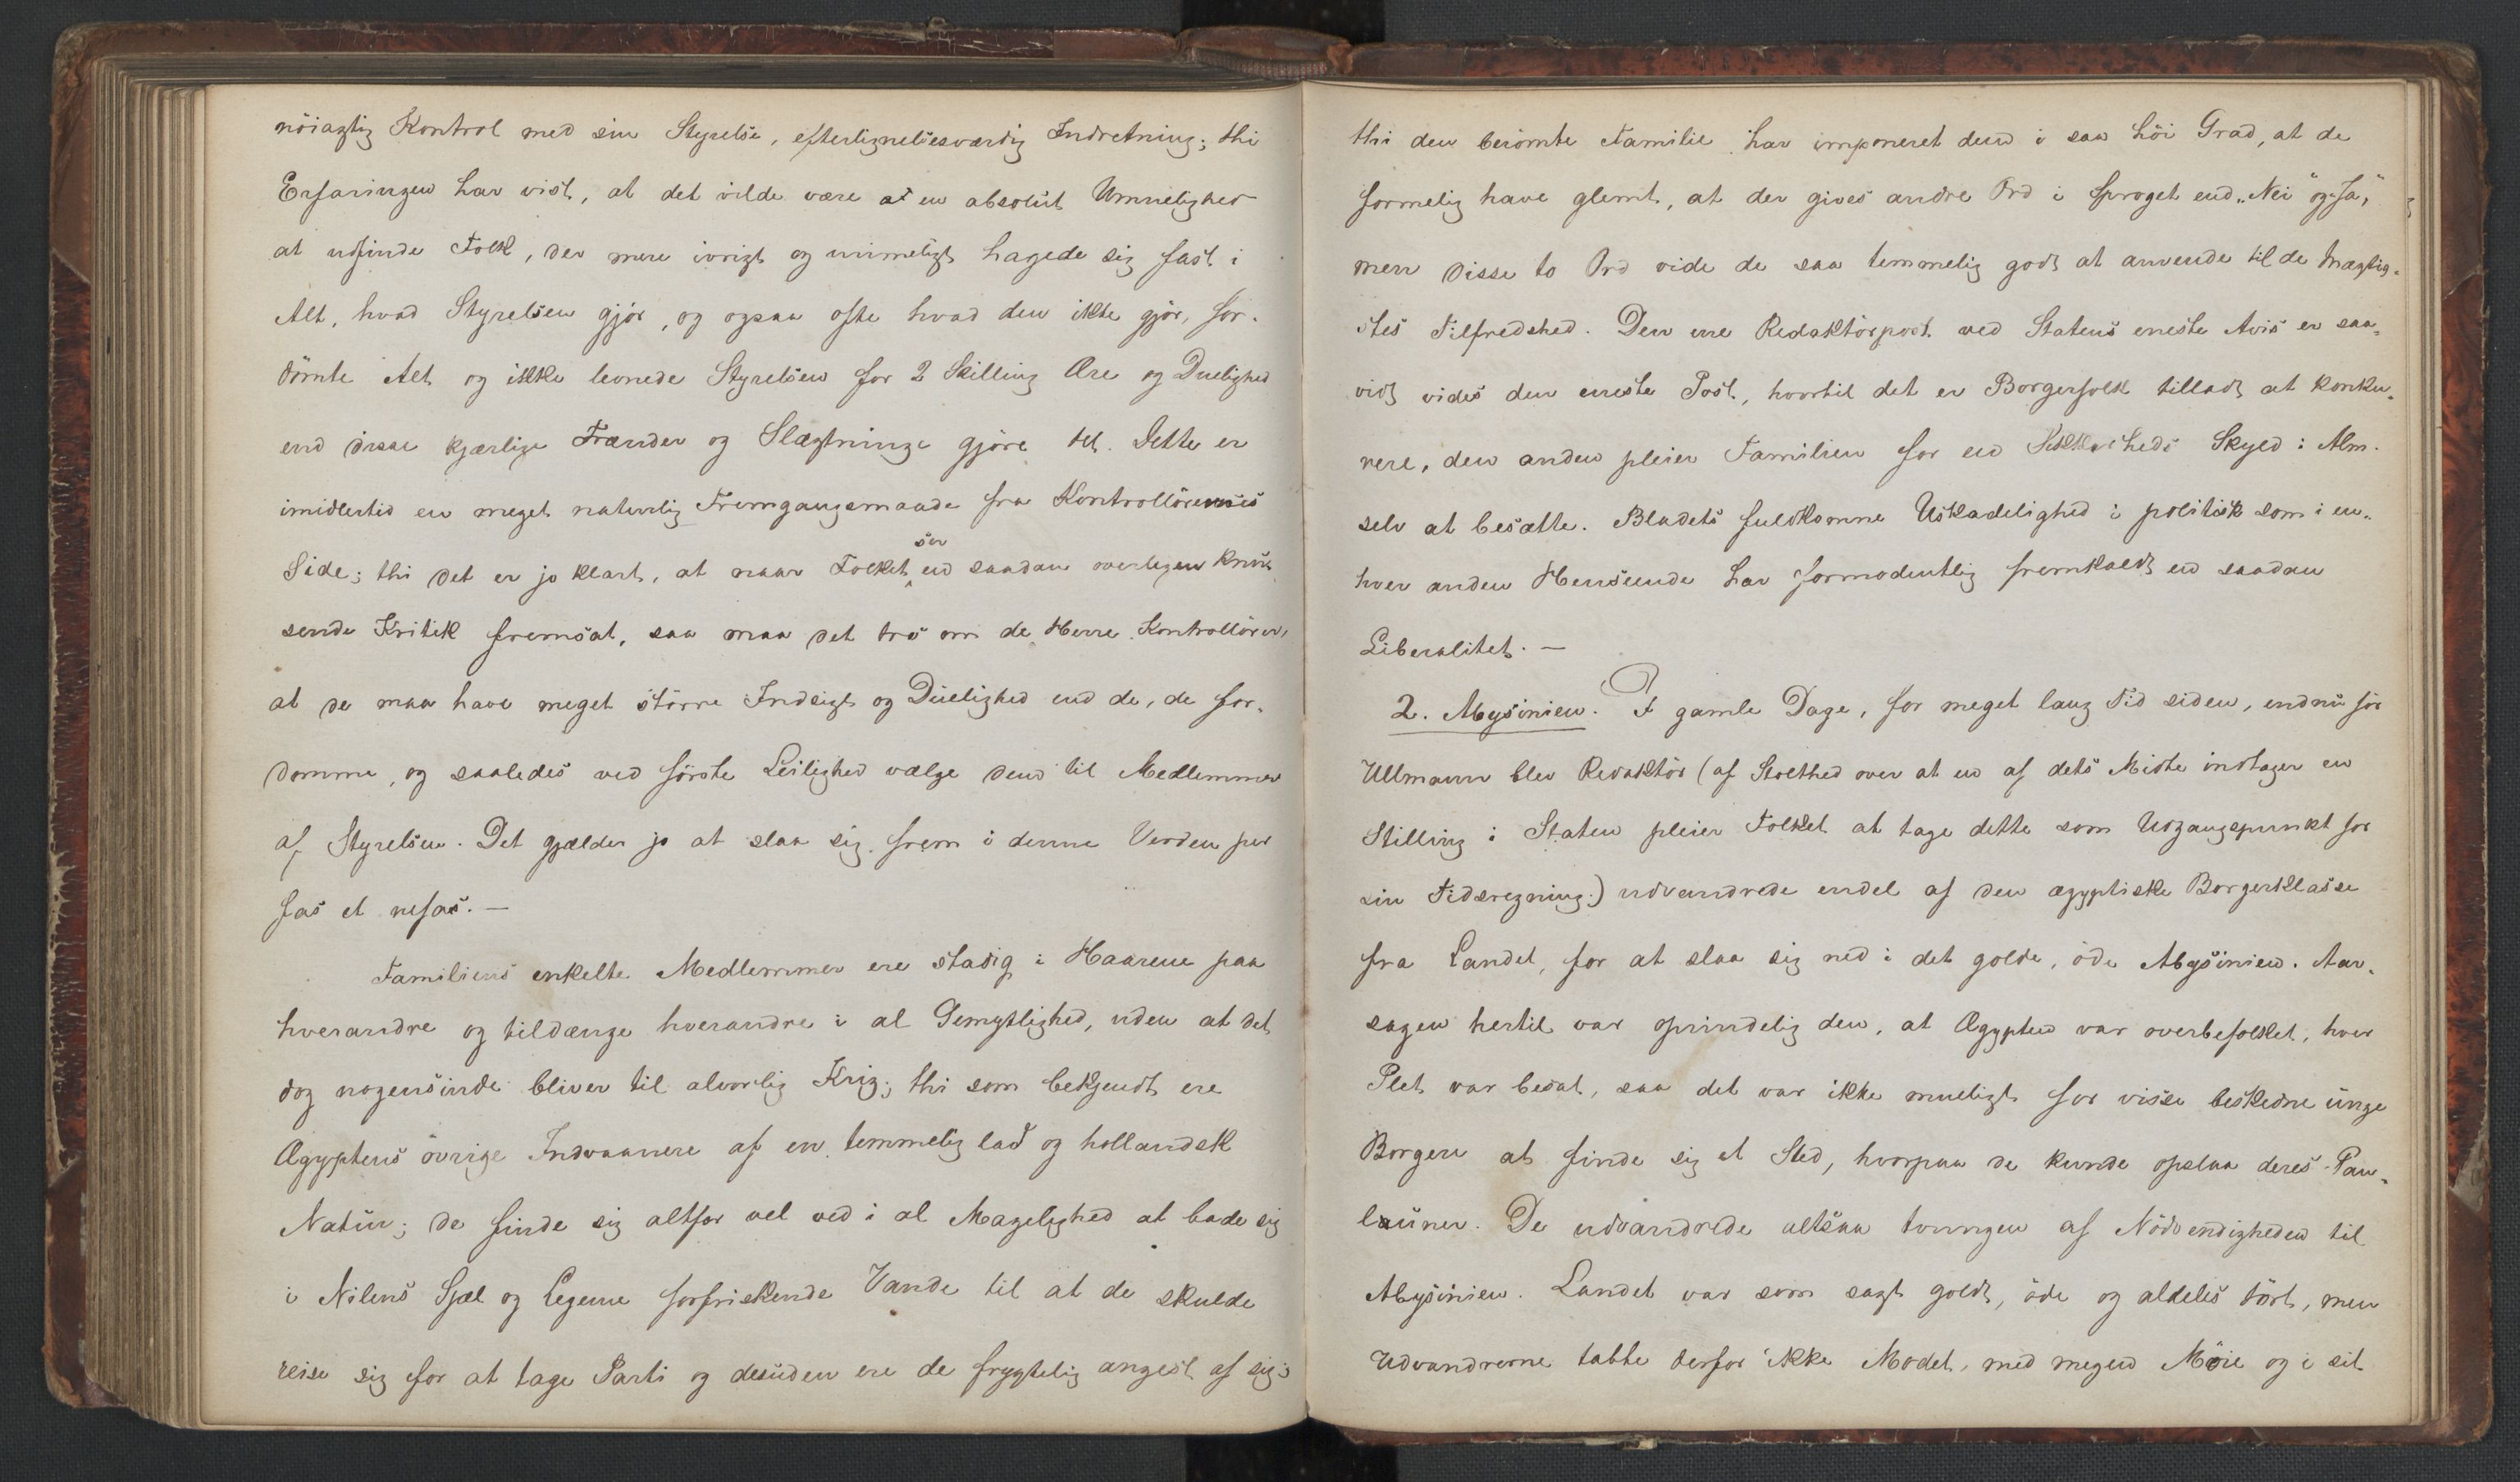 nöiagtig Kontrol med sin Styrelse, efterlignelsesværdig Indretning; thi
Erfaringen har vist, at det vilde være at en absolut Umuelighed
at udfinde Folk, der mere ivrigt og urimeligt hagede sig fast i
Alt, hvad Styrelsen gjör, og ogsaa ofte hvad den ikke gjör, for-
dömte Alt og ikke levnede Styrelsen for 2 Skilling Ære og Duelighed
end disse kjærlige Frænder og Slægtninge gjöre det. Dette er
imidlertid en meget naturlig Fremgangsmaade fra Kontrollörernes
Side; thi det er jo klart, at naar Folket ser en saadan overlegen knu-
sende Kritik fremsat, saa maa det tro om de Herre Kontrollörer,
at de maa have meget större Indsigt og Duelighed end de, de for-
domme, og saaledes ved förste Leilighed vælge dem til Medlemmer
af Styrelsen. Det gjælder jo at slaa sig frem i denne Verden per
fas et nefas. —
Familiens enkelte Medlemmer ere stadig i Haarene paa
hverandre og tildænge hverandre i al Gemytlighed, uden at det
dog nogensinde bliver til alvorlig Krig; thi som bekjendt ere
Ægyptens övrige Indvaanere af en temmelig lad og hollandsk
Natur; de finde sig altfor vel ved i al Magelighed at bade sig
i Nilens Sjæl og Legeme forfriskende Vande til at de skulde
reise sig for at tage Parti og desuden ere de frygtelig angest af sig;
thi den berömte Familie har imponeret dem i saa höi Grad, at de
formelig have glemt, at der gives andre Ord i Sproget end „Nei" og „Ja",
men disse to Ord vide de saa temmelig godt at anvende til de Mægtig-
stes Tilfredshed. Den ene Redaktörpost ved Statens eneste Avis er saa-
vidt vides den eneste Post, hvortil det er Borgerfolk tilladt at konku-
rere, den anden pleier Familien for en Sikkerheds Skyld i Alm.
selv at besætte. Bladets fuldkomne Uskadelighed i politisk som i en-
hver anden Henseende har formodentlig fremkaldt en saadan
Liberalitet. —
2. Abysinien. I gamle Dage, for meget lang Tid siden, endnu för
Ullmann blev Redaktör (af Stolthed over at en af dets Midte indtager en
Stilling i Staten pleier Folket at tage dette som Udgangspunkt for
sin Tidsregning.) udvandrede endel af den ægyptiske Borgerklasse
fra Landet, for at slaa sig ned i det golde, öde Abysinien. Aar-
sagen hertil var oprindelig den, at Ægypten var overbefolket, hver
Plet var besat, saa det var ikke mueligt for visse beskedne unge
Borgere at finde sig et Sted, hvorpaa de kunde opslaa deres Pau-
luner. De udvandrede altsaa tvungen af Nödvendigheden til
Abysinien. Landet var som sagt goldt, öde og aldeles tört, men
Udvandrerne tabte derfor ikke Modet, med megen Möie og i sit